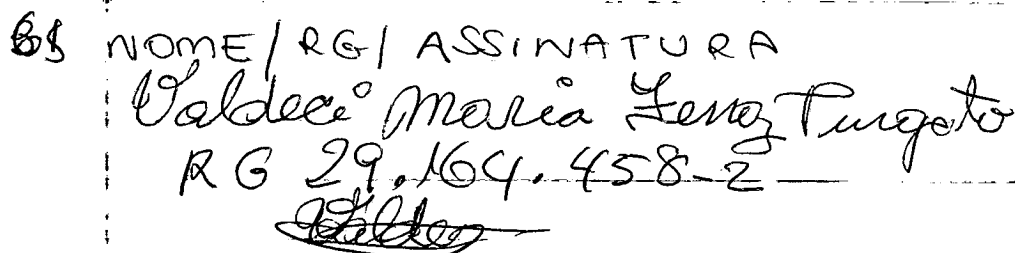 NOME/RG/ASSINATURA
Valdeci Maria Ferraz Purgato
RG 29.164.458-2